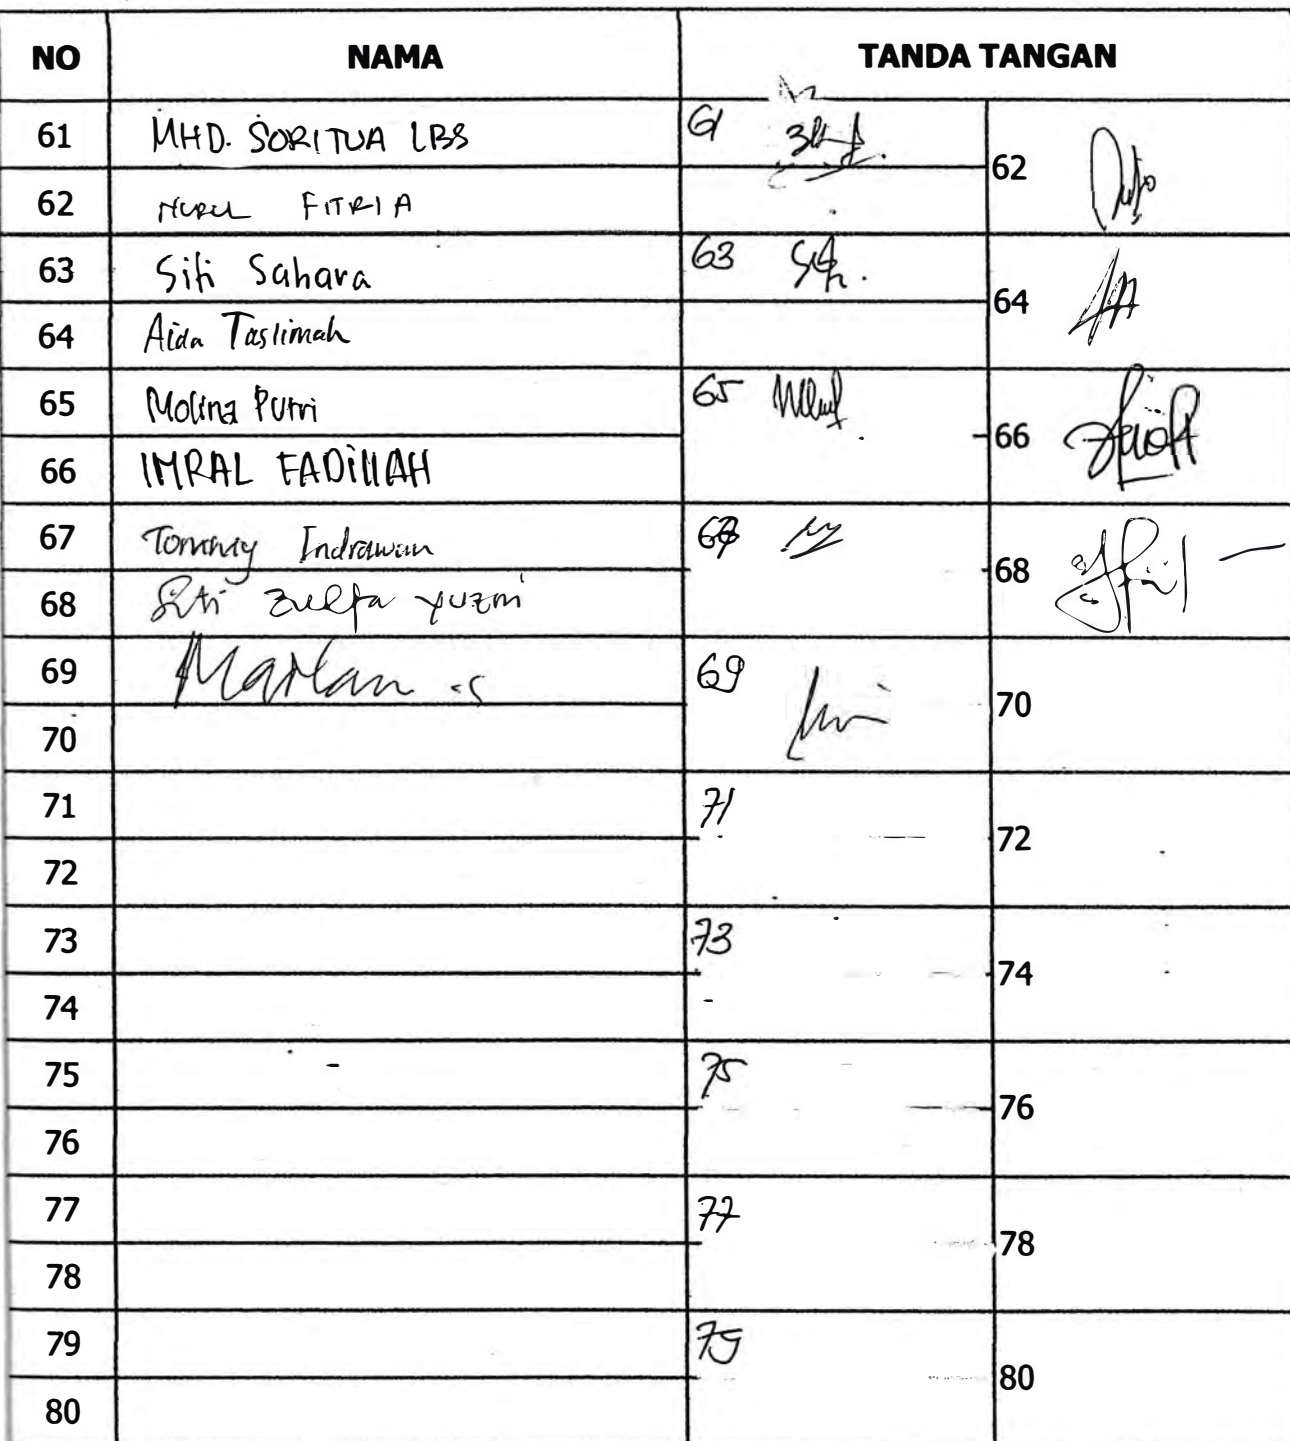 NO NAMA TANDA TANGAN
61 MHD. SORITUA LBS 61
62 NURUL FITRIA 62
63 Siti Sahara 63
64 Aida Taslimah 64
65 Molina Putri 65
66 IMRAL FADILLAH 66
67 Tommy Indrawan 67
68 Siti Zulfa Yuzmi 68
69 Marlan .s 69
70 70
71 71
72 72
73 73
74 74
75 75
76 76
77 77
78 78
79 79
80 80